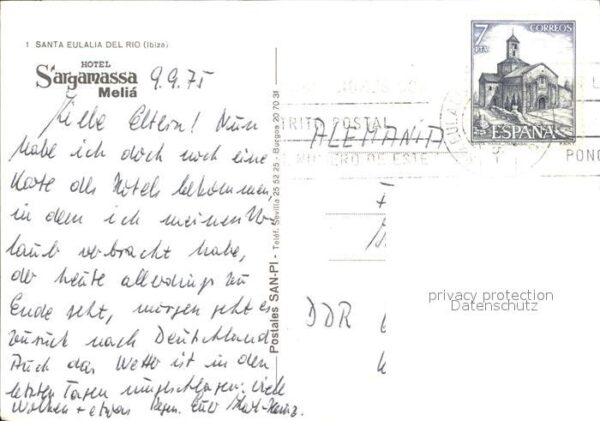 1 SANTA EULALIA DEL RIO (Ibiza)
HOTEL
S'argamassa
Meliá
9.9.75
Liebe Eltern! Nun
habe ich doch noch eine
Karte des Hotels bekommen,
in dem ich meinen Ur-
laub verbracht habe,
der heute allerdings zu
Ende geht, morgen geht es
zurück nach Deutschland.
Auch das Wetter ist in den
letzten Tagen umgeschlagen: viel
Wolken + etwas Regen. Euer Karl-Heinz.
Postales SAN-PI - Teléf. Sevilla 25 52 25 - Burgos 20 70 31
7
PTA
CORREOS
ESPAÑA
TRITO POSTAL
NUMERO DE ESTE
PONG
ALEMANIA
DDR
privacy protection
Datenschutz